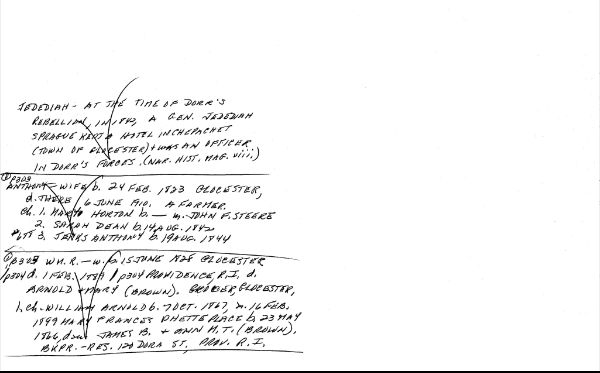 JEDEDIAH - AT THE TIME OF DORR'S
REBELLION, IN 1842, A GEN. JEDEDIAH
SPRAGUE KEPT A HOTEL IN CHEPACHET
(TOWN OF GLOCESTER) + WAS AN OFFICER
IN DORR'S FORCES. (NAR. HIST. MAG. viii.)
p303
ANTHONY - WIFE b. 24 FEB. 1823 GLOCESTER,
d. THERE 6 JUNE 1910. A FARMER.
ch. 1. HORTON b. — m. JOHN F. STEERE
2. SARAH DEAN b. 14 AUG. 1842
3. JENKS ANTHONY b. 19 AUG. 1844
p303 WM. R. - w. b. 15 JUNE GLOCESTER
p304 d. 1 FEB. 1889 / p304 PROVIDENCE, R.I. d.
ARNOLD + MARY (BROWN). GLOCESTER,
1. ch. - WILLIAM ARNOLD b. 7 OCT. 1867, m. 16 FEB.
1899 MARY FRANCES RHETTEPLACE b. 23 MAY
1866, dau JAMES B. + ANN M. T. (BROWN).
BKPR. - RES. DORA ST, PROV. R.I.